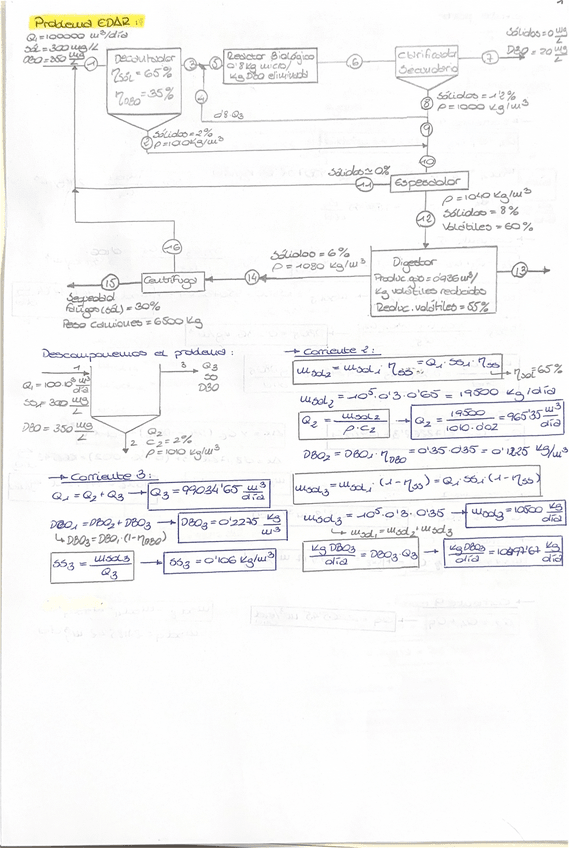 Problema EDAR
Q₁=100000 m³/día
Sól=300 mg/L
DBO=350 mg/L
1
Decantador
ηsól=65%
ηDBO=35%
3
5
Reactor Biológico
0'8 kg micro/
kg DBO eliminada
6
Clarificador
Secundario
7
Sólidos=0 mg/L
DBO=20 mg/L
4
0'8·Q₃
8
Sólidos=1'2%
ρ=1000 Kg/m³
9
2
Sólidos=2%
ρ=1010 Kg/m³
10
Sólidos≈0%
11
Espesador
ρ=1040 Kg/m³
12
Sólidos=8%
Volátiles=60%
16
Sólidos=6%
ρ=1080 Kg/m³
Digestor
Produc.gas=0'936 m³/
Kg volátiles reducidos
Reduc.volátiles=55%
13
15
Centrífuga
14
Sequedad
Fangos (sól)=30%
Peso camiones=6500 Kg
Descomponemos el problema:
1
3
Q₃
SS
DBO
Q₁=100·10³ m³/día
SS₁=300 mg/L
DBO=350 mg/L
2
Q₂
C₂=2%
ρ=1010 kg/m³
→ Corriente 2:
msol₂=msol₁·ηss=Q₁·SS₁·ηss
→ ηsol=65%
msol₂=10⁵·0'3·0'65=19500 kg/día
Q₂=msol₂/ρ·C₂ → Q₂=19500/1010·0'02=965'35 m³/día
DBO₂=DBO₁·ηDBO=0'35·0'35=0'1225 kg/m³
→ Corriente 3:
Q₁=Q₂+Q₃ → Q₃=99034'65 m³/día
DBO₁=DBO₂+DBO₃ → DBO₃=0'2275 kg/m³
↳ DBO₃=DBO₁·(1-ηDBO)
SS₃=msol₃/Q₃ → SS₃=0'106 Kg/m³
msol₃=msol₁·(1-ηss)=Q₁·SS₁(1-ηss)
msol₃=10⁵·0'3·0'35 → msol₃=10500 kg/día
↳ msol₁=msol₂+msol₃
kg DBO₃/día=DBO₃·Q₃ → kg DBO₃/día